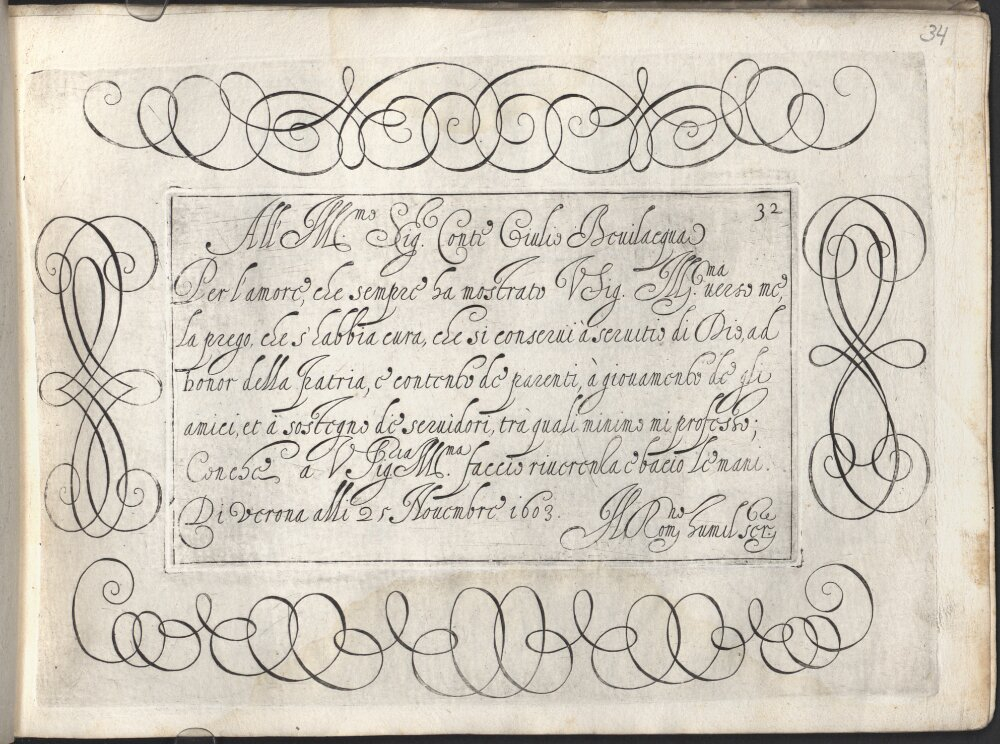 34
32
All' Ill.mo Sig. Conte Giulio Bevilacqua
Per l'amore, che sempre ha mostrato V Sig. Ill.ma verso me,
la prego, che s'habbia cura, che si conservi à servitio di Dio, ad
honor della Patria, e contento de parenti, à giovamento de gli
amici, et à sostegno de servidori, trà quali minimo mi professo;
Conche a V Sig.ria Ill.ma faccio riverenza e bacio le mani.
Di Verona alli 25 Novembre 1603.
Rom humil ser